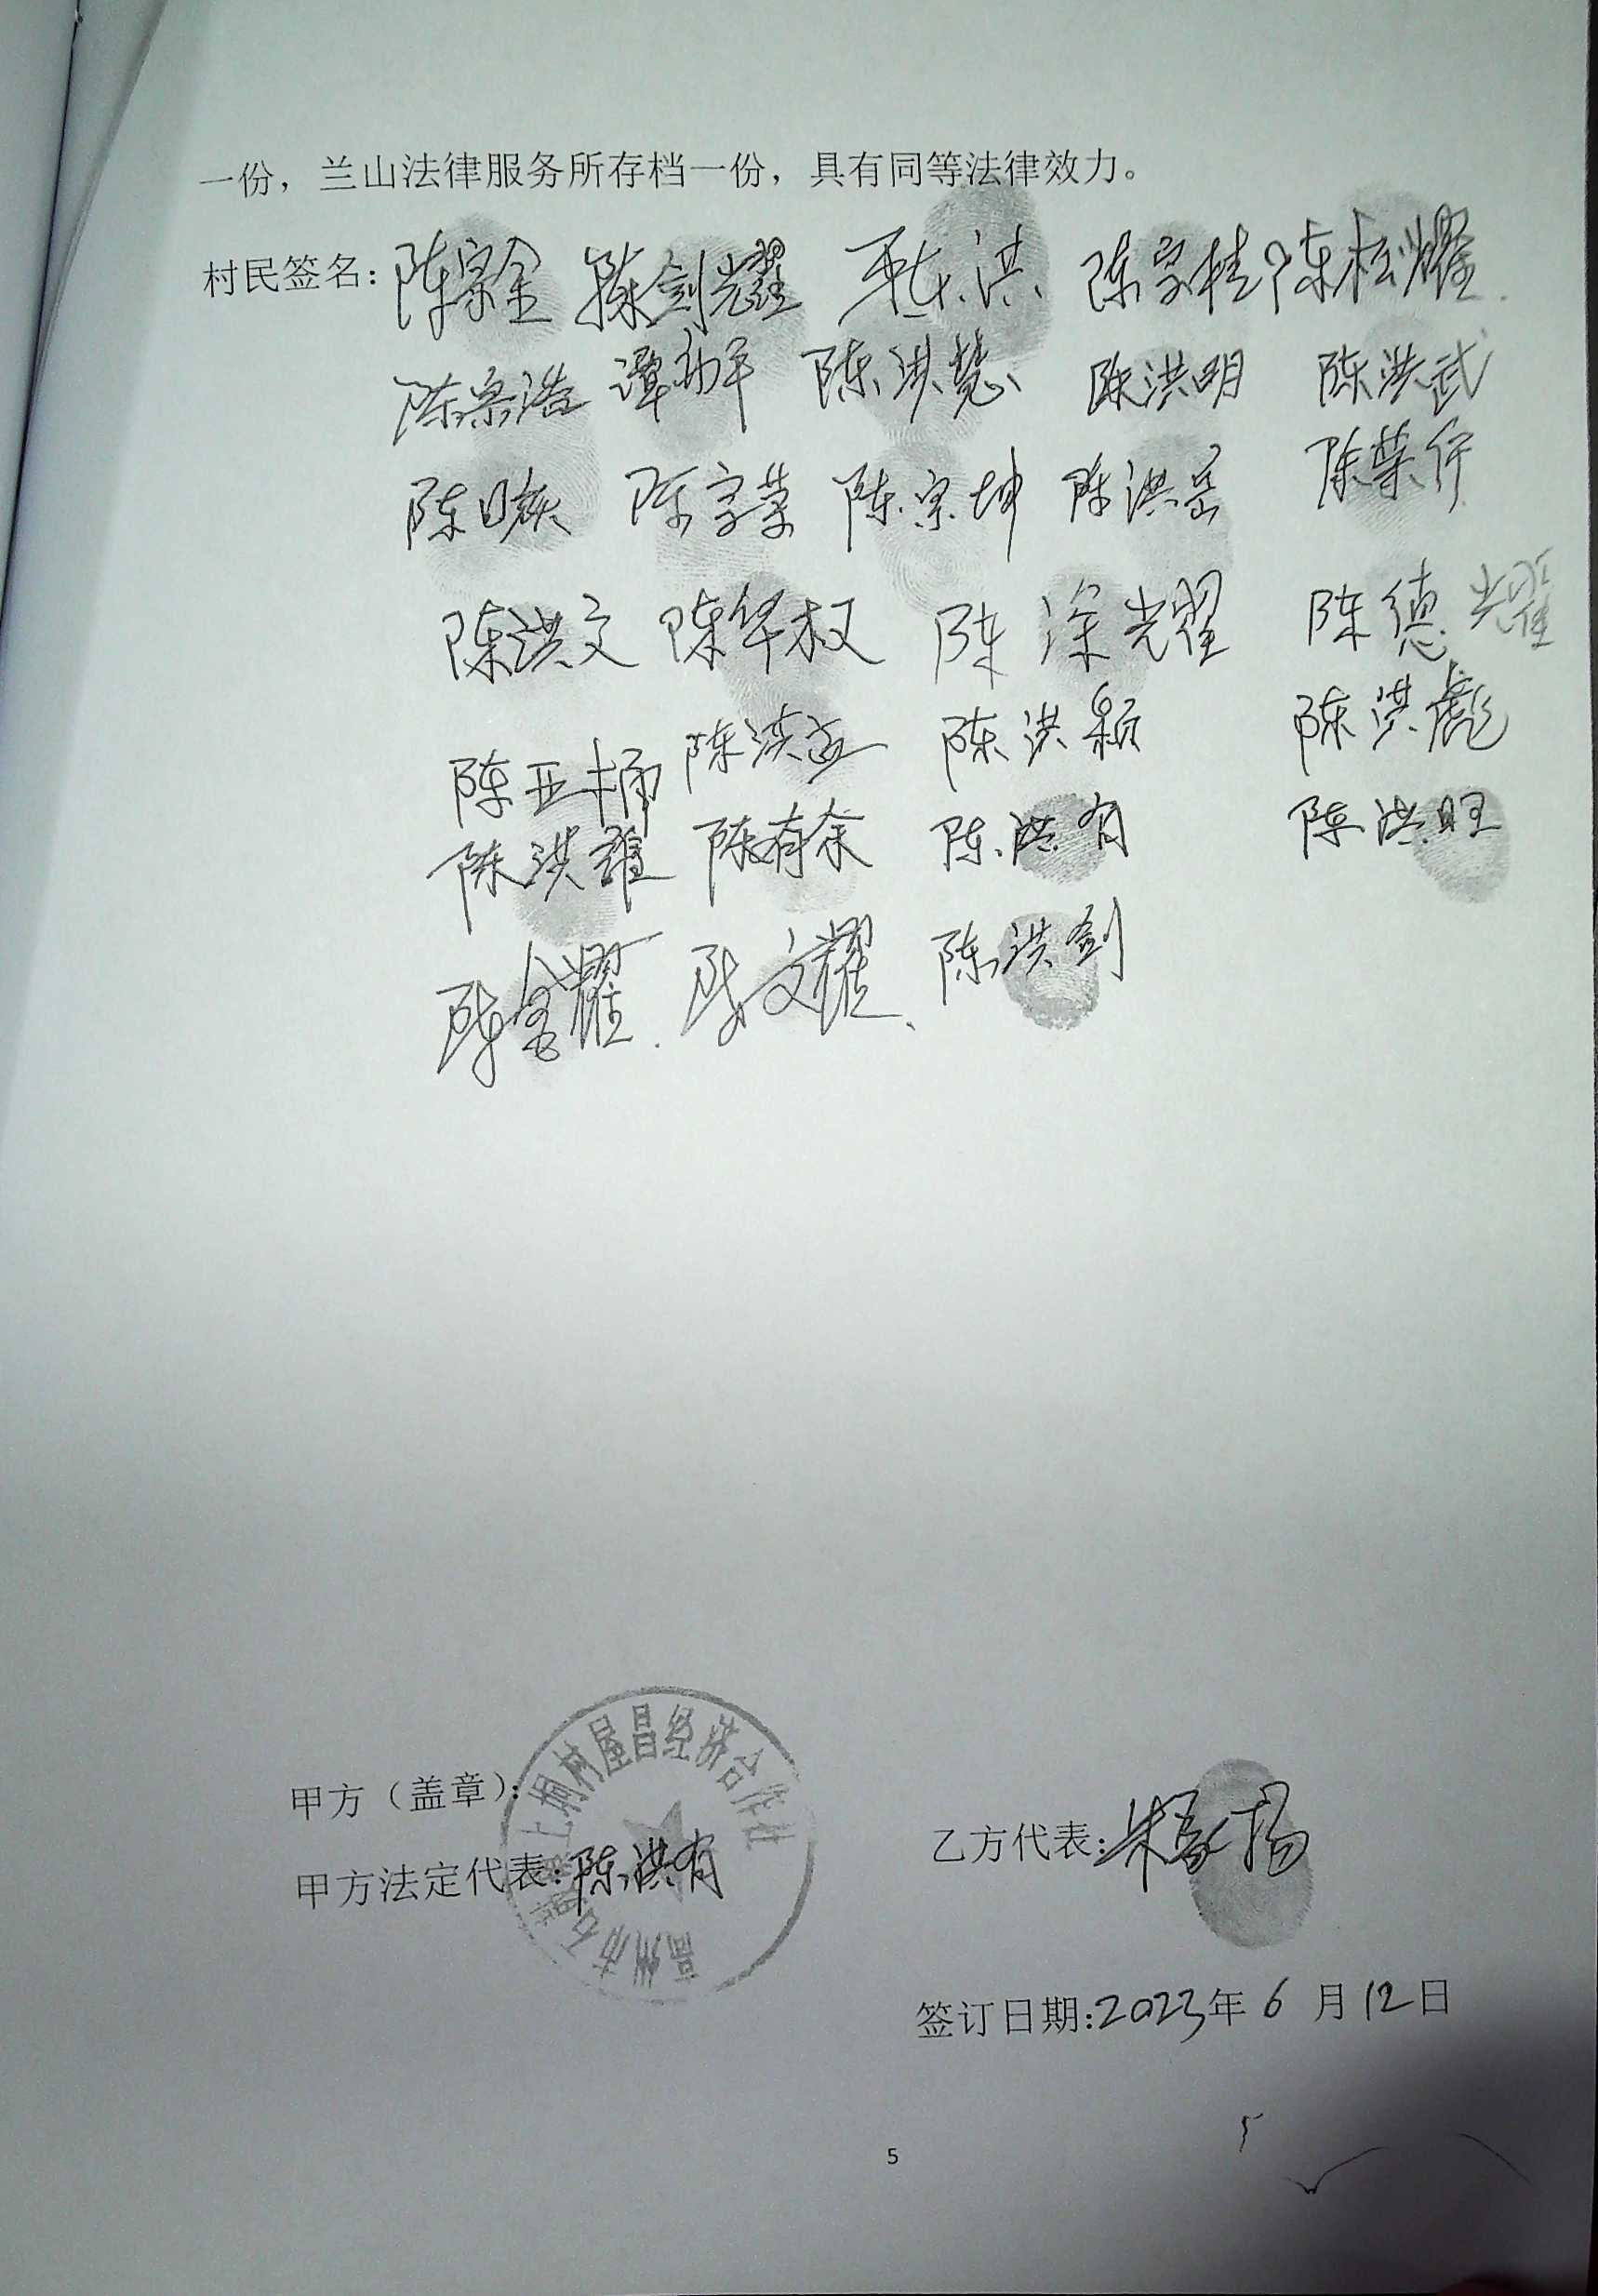 一份，兰山法律服务所存档一份，具有同等法律效力。
村民签名：陈宗金 陈剑耀 陈洪 陈宗桂 陈松耀
陈宗浩 谭 陈洪慧 陈洪明 陈洪武
陈日 陈宗荣 陈宗坤 陈洪岳 陈荣
陈洪文 陈华权 陈 耀 陈德耀
陈亚 陈洪 陈洪 陈洪彪
陈洪雄 陈有余 陈洪有 陈洪旺
陈金耀 陈文耀 陈洪剑
甲方（盖章）：
甲方法定代表：陈洪有
乙方代表：
高州市石 村屋昌经济合作社
签订日期：2023年6月12日
5